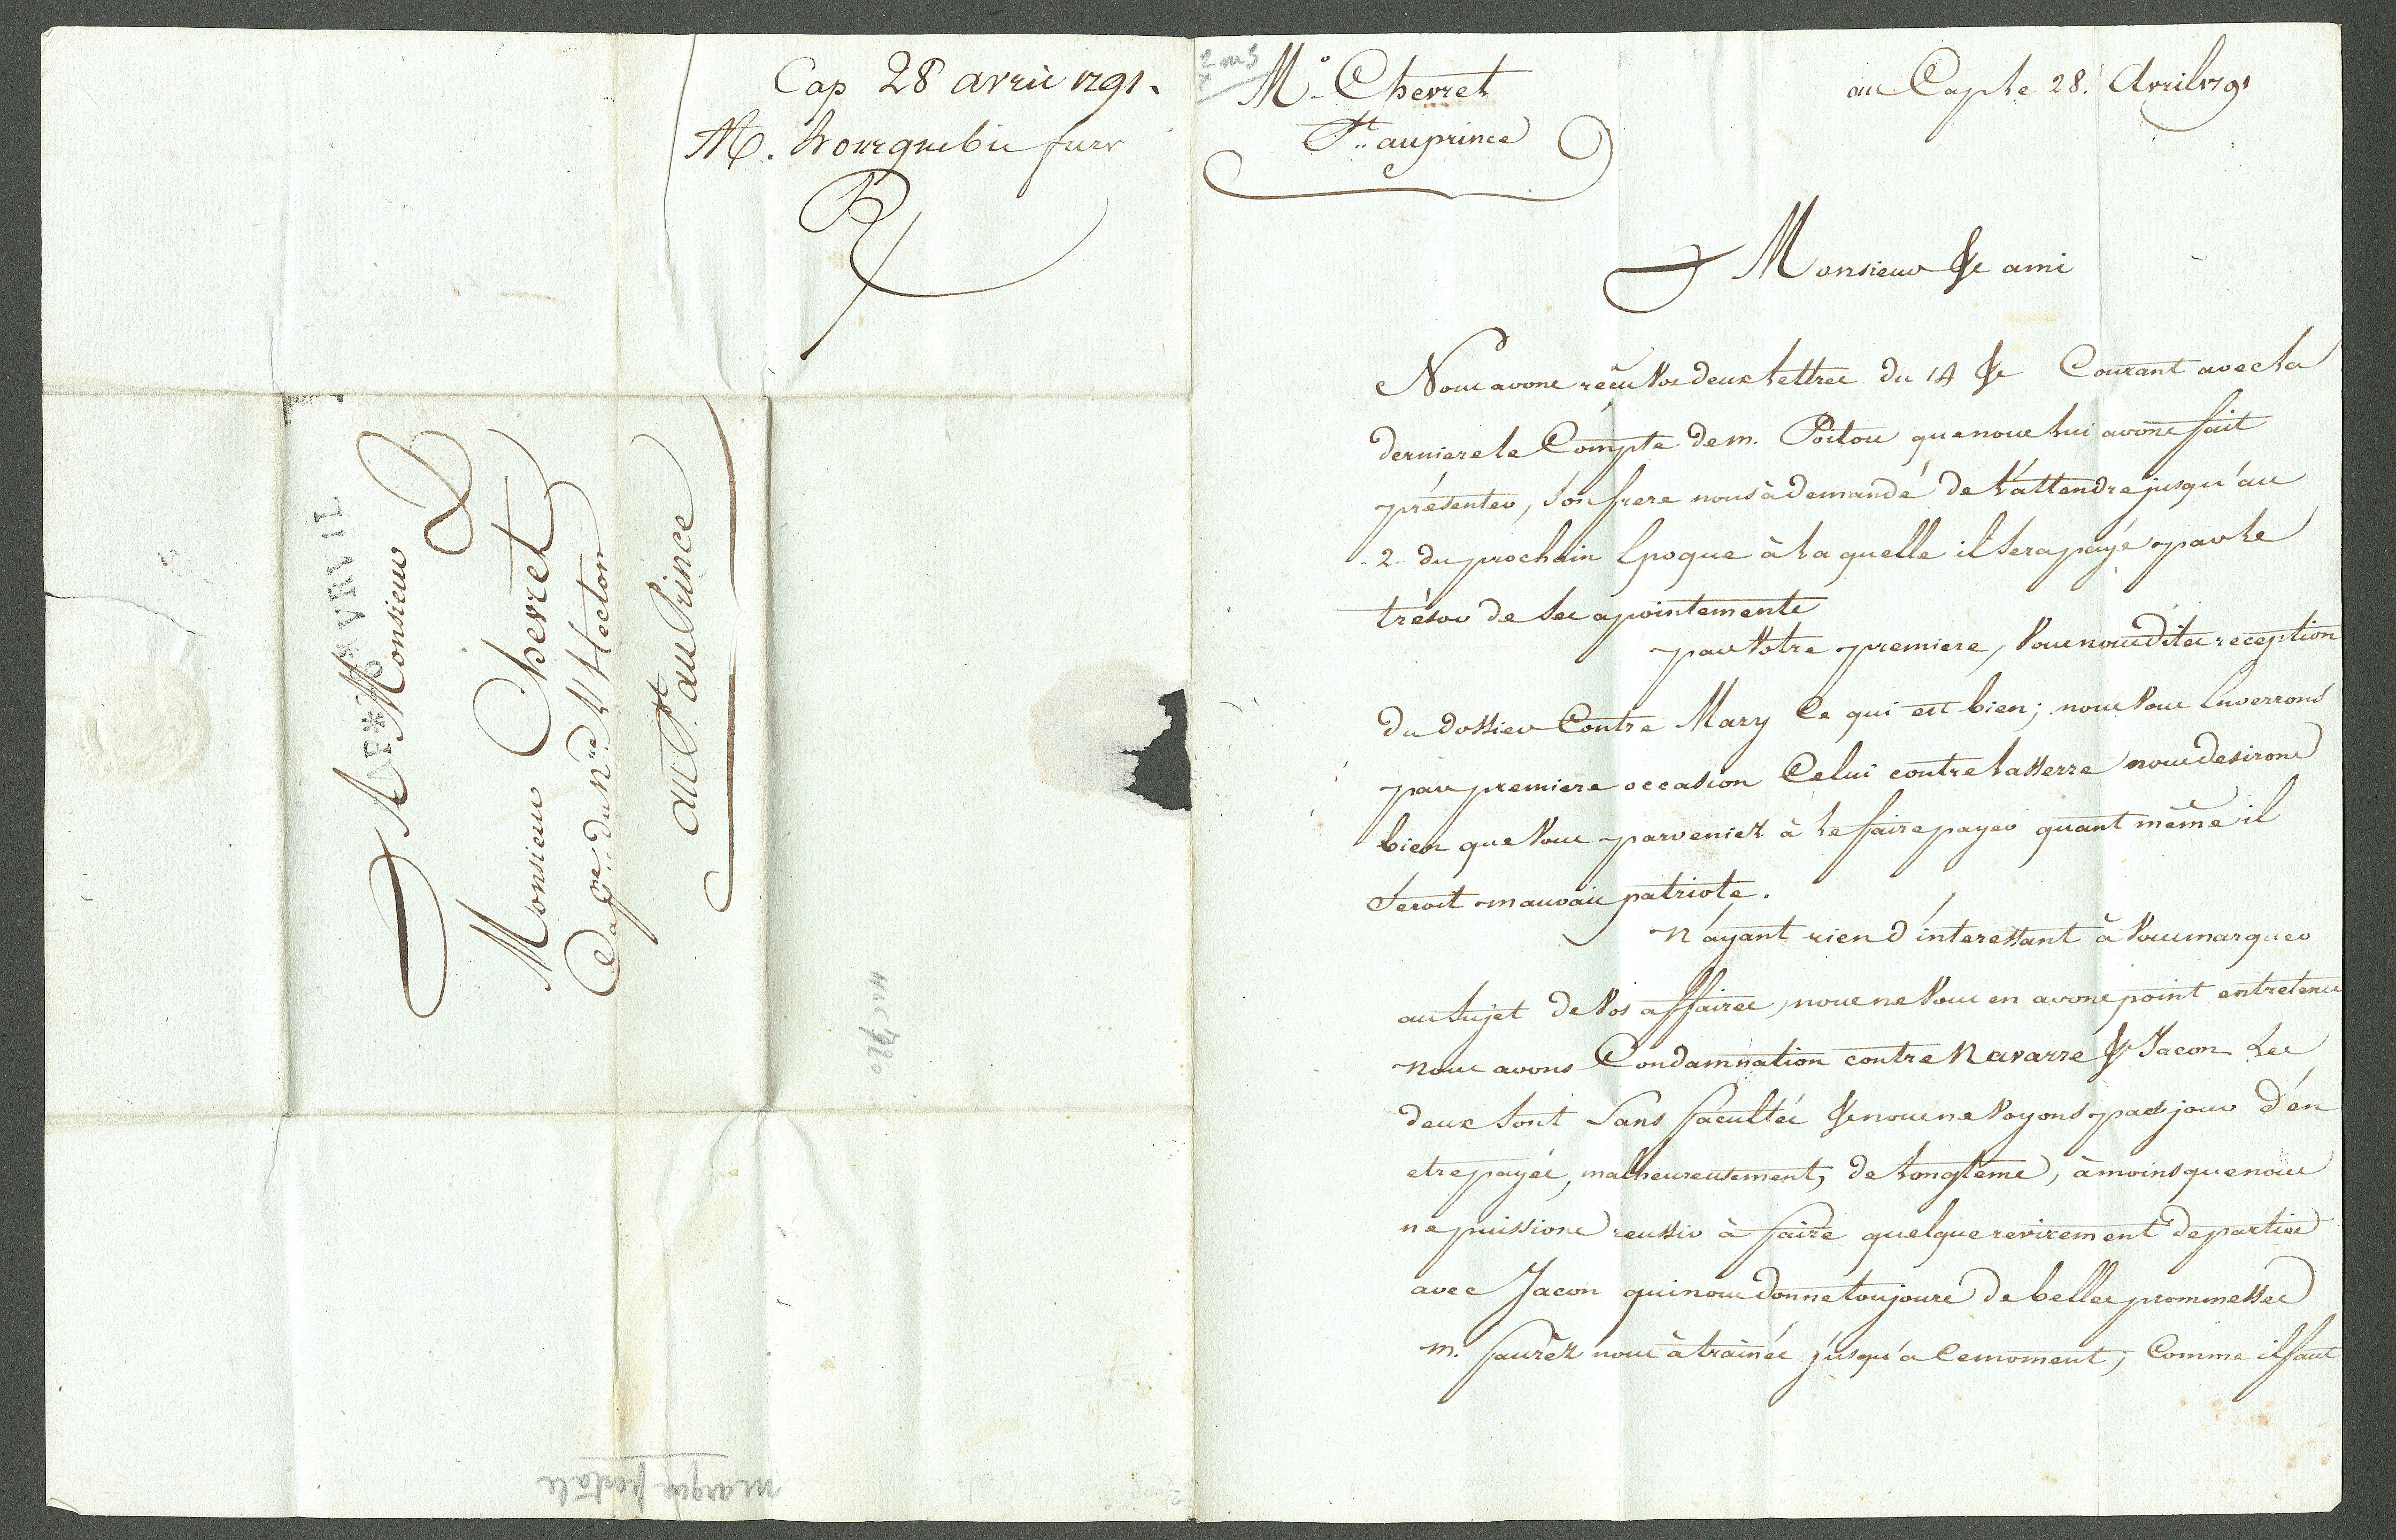 Cap 28 avril 1791.
M. frer
R
AP*
AVRIL
A Monsieur
Monsieur Cherret
Cap.ne du N.re L'Hector
au P.t au Prince
marque postale
M.o Cherret
P.t au prince
au Cap le 28. Avril 1791
Monsieur & ami
Nous avons reçu Vos deux lettres du 14 & Courant avec la
derniere le Compte de m. Poitou que nous lui avons fait
présenter, Son frere nous à demandé de l'attendre jusqu'au
2. du prochain Epoque à la quelle il Sera payé par le
trésor de Ses apointements
par Votre premiere, Vous nous dites reception
du dossier Contre Mary Ce qui est bien; nous Vous Enverrons
par premiere occasion Celui contre Lasserre nous desirons
bien que Vous parveniez à le faire payer quant même il
Seroit mauvais patriote.
N'ayant rien d'interessant à Vous marquer
au Sujet de Vos affaires, nous ne Vous en avons point entretenu
nous avons Condamnation contre Navarre & Jacon Les
deux Sont Sans facultés & nous ne Voyons pas jour d'en
etre payés, malheureusement, de longtems, à moins que nous
ne puissions reussir à faire quelque revirement de parties
avec Jacon qui nous donne toujours de belles prommesses
m. faurèz nous à trainés jusqu'a Ce moment; Comme il faut